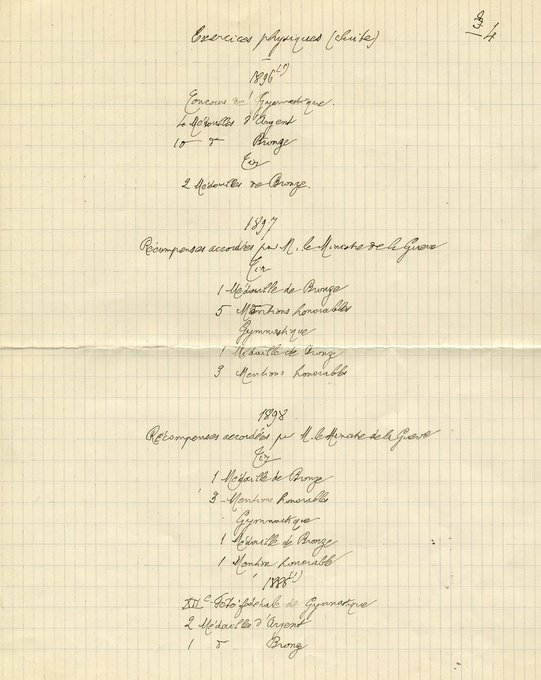 4
Exercices physiques (suite)
1896 (1)
Concours de Gymnastique.
4 Médailles d'Argent
10 do Bronze
Tir
2 Médailles de Bronze.
1897
Récompenses accordées par M. le Ministre de la Guerre
Tir
1 Médaille de Bronze
5 Mentions honorables
Gymnastique
1 Médaille de Bronze
3 Mentions honorables
1898
Récompenses accordées par M. le Ministre de la Guerre
Tir
1 Médaille de Bronze
3 Mentions honorables
Gymnastique
1 Médaille de Bronze
1 Mention honorable
Fête fédérale de Gymnastique
2 Médailles d'Argent
1 do Bronze